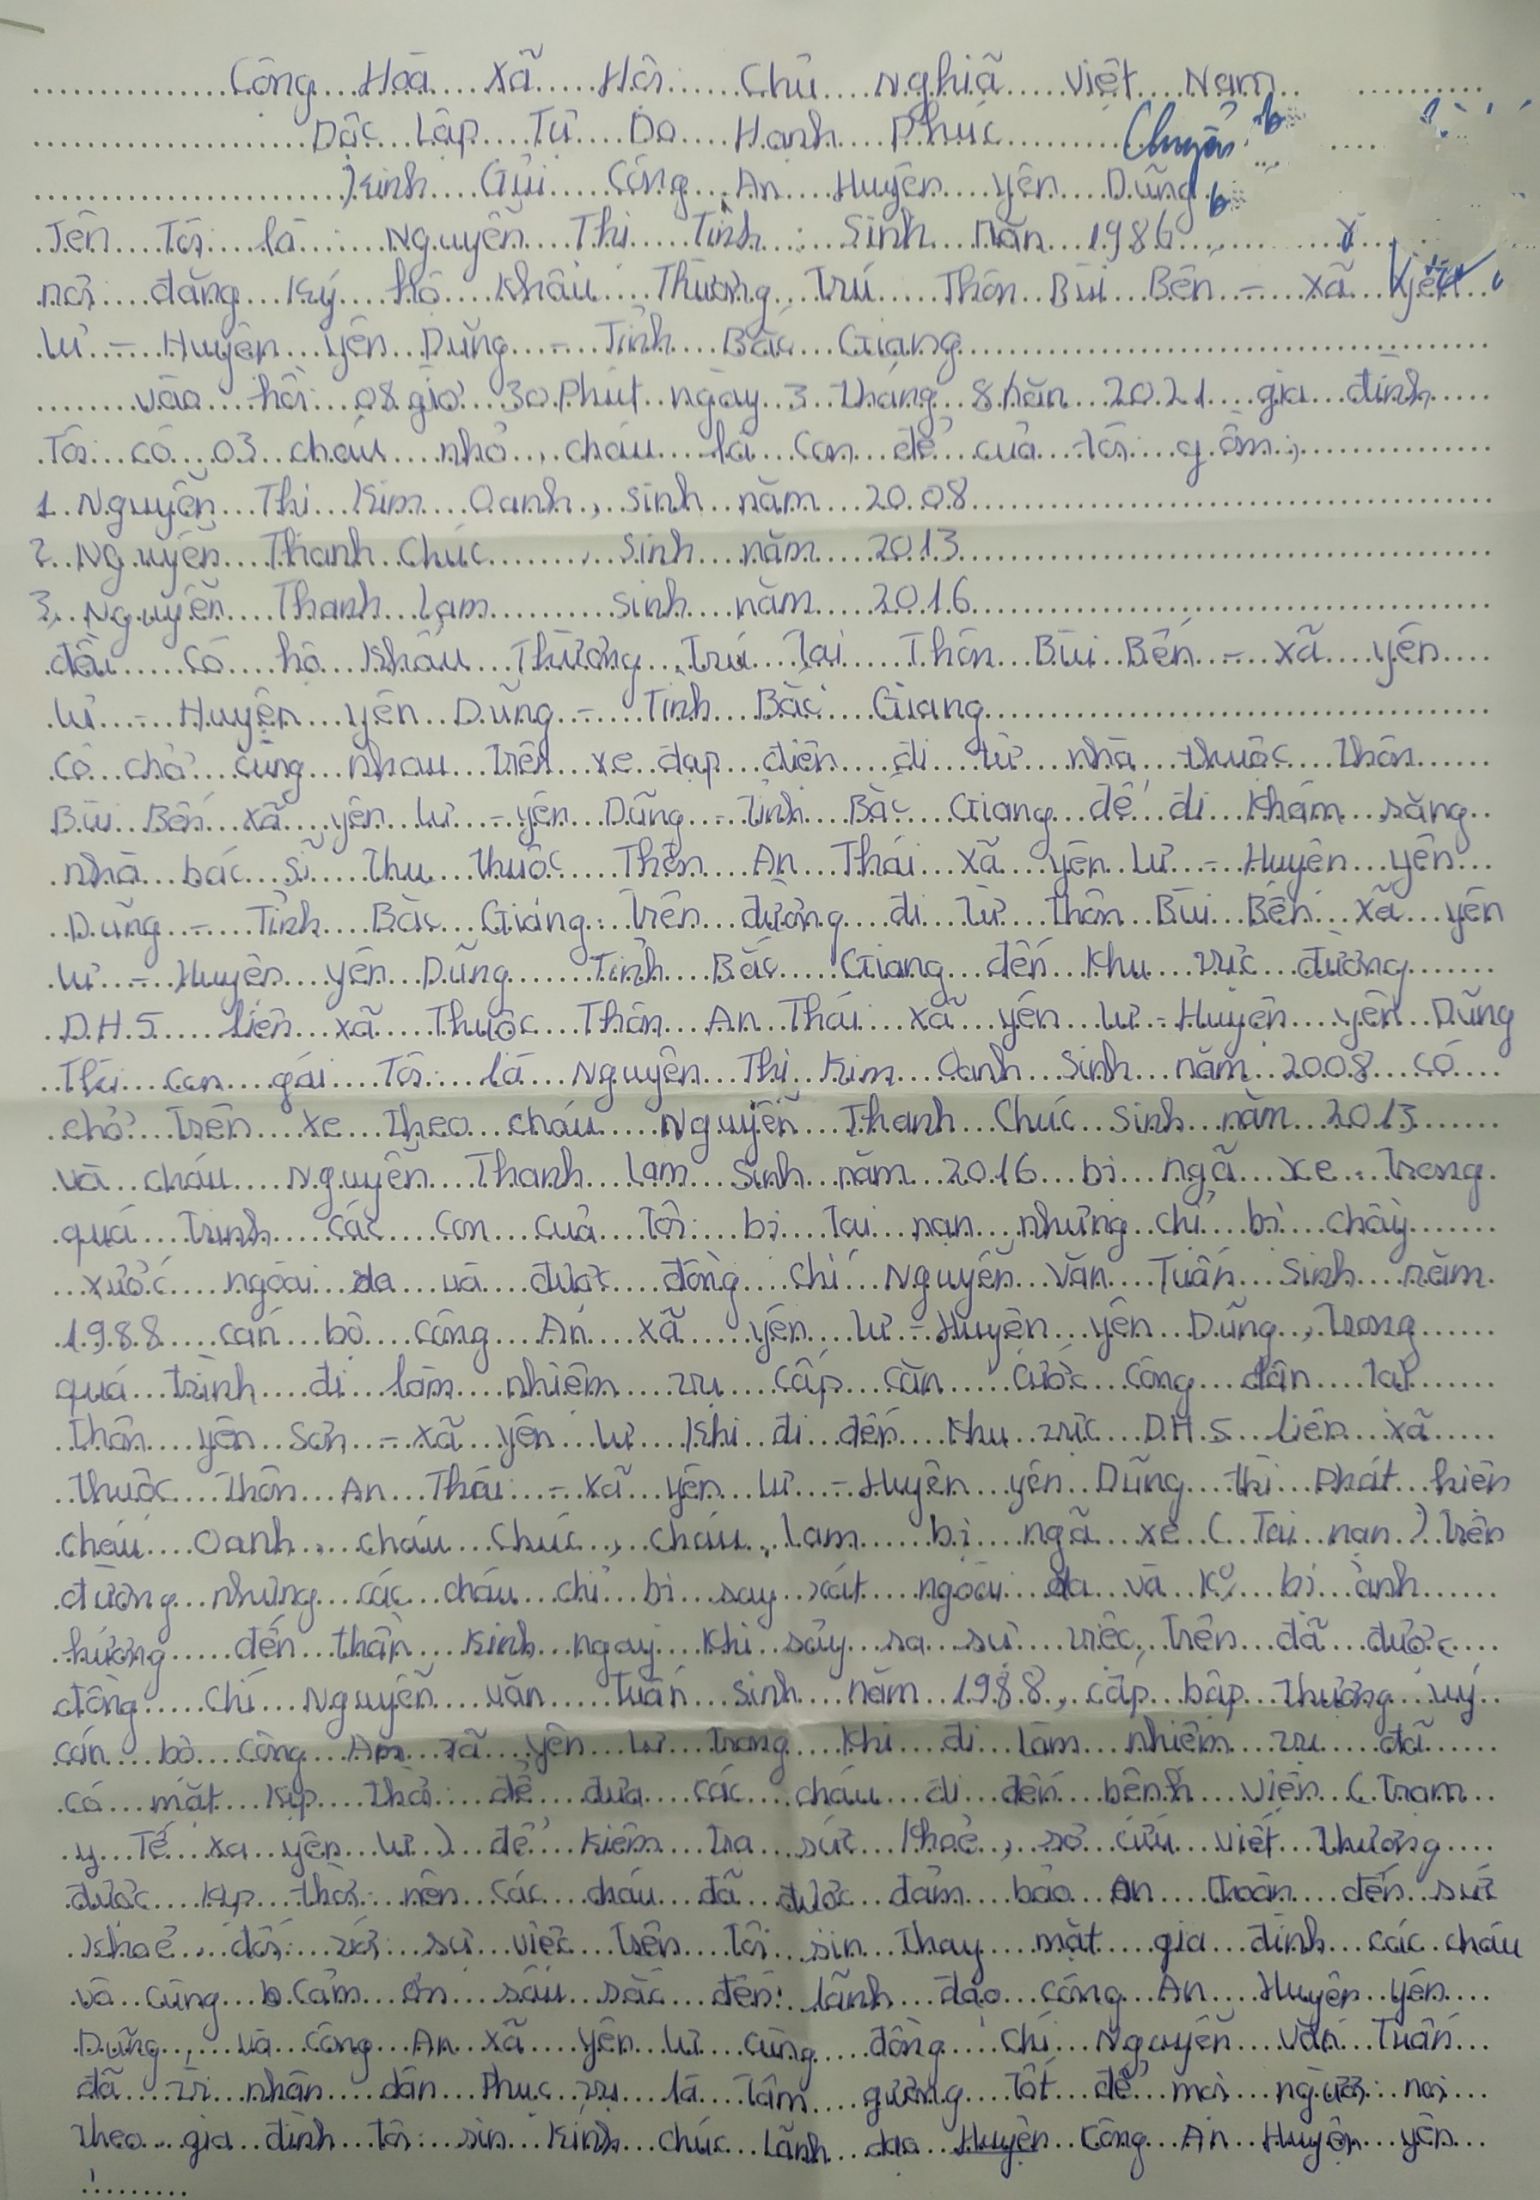 Cộng Hòa Xã Hội Chủ Nghĩa Việt Nam
Độc Lập Tự Do Hạnh Phúc Chuyển
Kính Gửi Công An Huyện Yên Dũng
Tên Tôi là: Nguyễn Thị Tình: Sinh Năn 1986
nơi đăng ký hộ khẩu Thường Trú Thôn Bùi Bến - xã Yên
Lư - Huyện Yên Dũng - Tỉnh Bắc Giang
vào hồi 08 giờ 30 Phút ngày 3 tháng 8 năn 2021 gia đình
Tôi có 03 cháu nhỏ, cháu là con đẻ của tôi gồm:
1. Nguyễn Thị Kim Oanh, sinh năm 2008
2. Nguyễn Thanh Chúc, sinh năm 2013
3, Nguyễn Thanh Lam sinh năm 2016
đều có hộ khẩu Thường Trú Tại Thôn Bùi Bến - xã Yên
Lư - Huyện Yên Dũng - Tỉnh Bắc Giang
có chở cùng nhau trên xe đạp điện đi từ nhà thuộc thôn
Bùi Bến xã Yên Lư - Yên Dũng - tỉnh Bắc Giang để đi khám răng
nhà bác sĩ Thu thuộc Thôn An Thái xã Yên Lư - Huyện Yên
Dũng - Tỉnh Bắc Giang: Trên đường đi từ thôn Bùi Bến xã Yên
Lư - Huyện Yên Dũng Tỉnh Bắc Giang đến khu vực đường
D.H.5 liên xã Thuộc Thôn An Thái xã Yên Lư - Huyện Yên Dũng
Thì con gái Tôi là Nguyễn Thị Kim Oanh sinh năm 2008 có
chở trên xe theo cháu Nguyễn Thanh Chúc sinh năm 2013
và cháu Nguyễn Thanh Lam sinh năm 2016 bị ngã xe. Trong
quá trình các con của Tôi bị tai nạn nhưng chỉ bị chầy
xước ngoài da và được đồng chí Nguyễn Văn Tuấn Sinh năm
1988 cán bộ công An xã Yên Lư - Huyện - Yên Dũng, Trong
quá trình đi làm nhiệm vụ cấp căn cước công dân tại
thôn Yên Sơn - xã Yên Lư khi đi đến khu vực D.H.5 liên xã
thuộc thôn An Thái - xã Yên Lư - Huyện Yên Dũng thì Phát hiện
cháu Oanh, cháu Chúc, cháu Lam bị ngã xe (Tai nạn) trên
đường nhưng các cháu chỉ bị say xát ngoài da và Ko bị ảnh
hưởng đến thần kinh ngay khi sảy ra sự việc, trên đã được
đồng chí Nguyễn văn Tuấn sinh năm 1988, cấp bập thượng uý
cán bộ công An xã Yên Lư trong khi đi làm nhiệm vụ đã
có mặt kịp thời để đưa các cháu đi đến bệnh viện (Trạm
y Tế xa Yên Lư) để kiểm tra sức khoẻ, sơ cứu viết thương
được kịp thời nên các cháu đã được đảm bảo An toàn đến sức
khoẻ, đối với sự việc trên tôi sin thay mặt gia đình các cháu
vô cùng cảm ơn sâu sắc đến: lãnh đạo công An Huyện Yên
Dũng, và công An xã Yên Lư cùng đồng chí Nguyễn Văn Tuấn
đã vì nhân dân Phục vụ là tấm gương tốt để mọi người noi
theo gia đình tôi sin kính chúc lãnh đạo Huyện Công An Huyện Yên